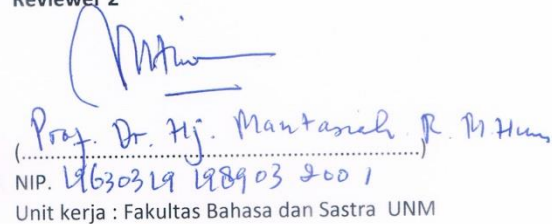 Reviewer 2
(Prof. Dr. Hj. Mantasiah R. M.Hum)
NIP. 19630319 198903 2001
Unit kerja : Fakultas Bahasa dan Sastra UNM